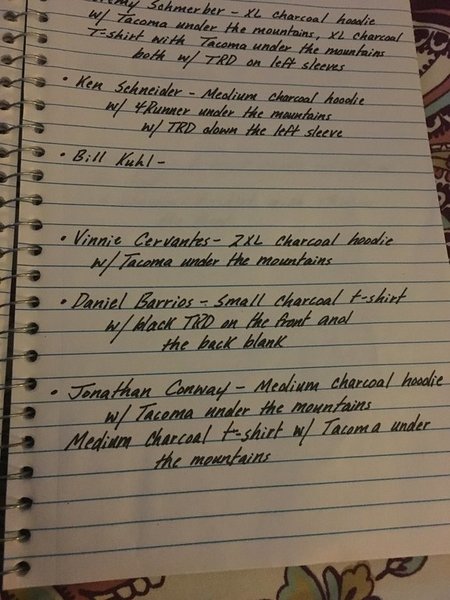 Schmerber - XL charcoal hoodie
w/ Tacoma under the mountains, XL charcoal
T-shirt with Tacoma under the mountains
both w/ TRD on left sleeves
• Ken Schneider - Medium charcoal hoodie
w/ 4Runner under the mountains
w/ TRD down the left sleeve
• Bill Kuhl -
• Vinnie Cervantes - 2XL charcoal hoodie
w/ Tacoma under the mountains
• Daniel Barrios - Small charcoal t-shirt
w/ black TRD on the front and
the back blank
• Jonathan Conway - Medium charcoal hoodie
w/ Tacoma under the mountains
Medium charcoal t-shirt w/ Tacoma under
the mountains